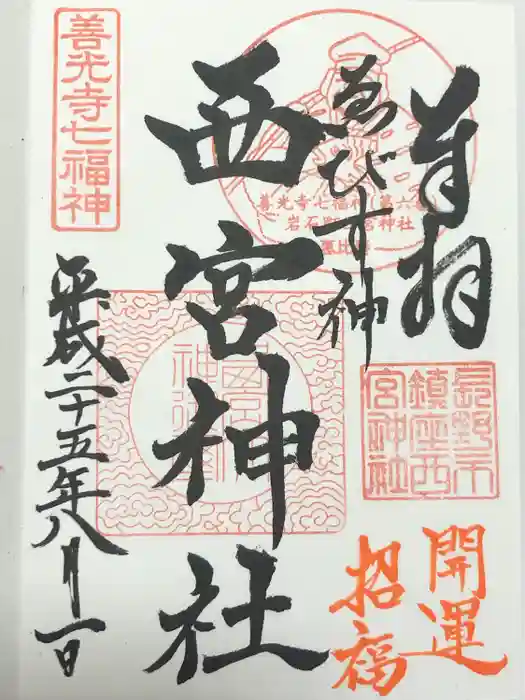 奉拝
ゑびす神
西宮神社
平成二十五年八月一日
善光寺七福神
善光寺七福神
岩石町
宮神社
長野市
鎮座西
宮神社
開運
招福